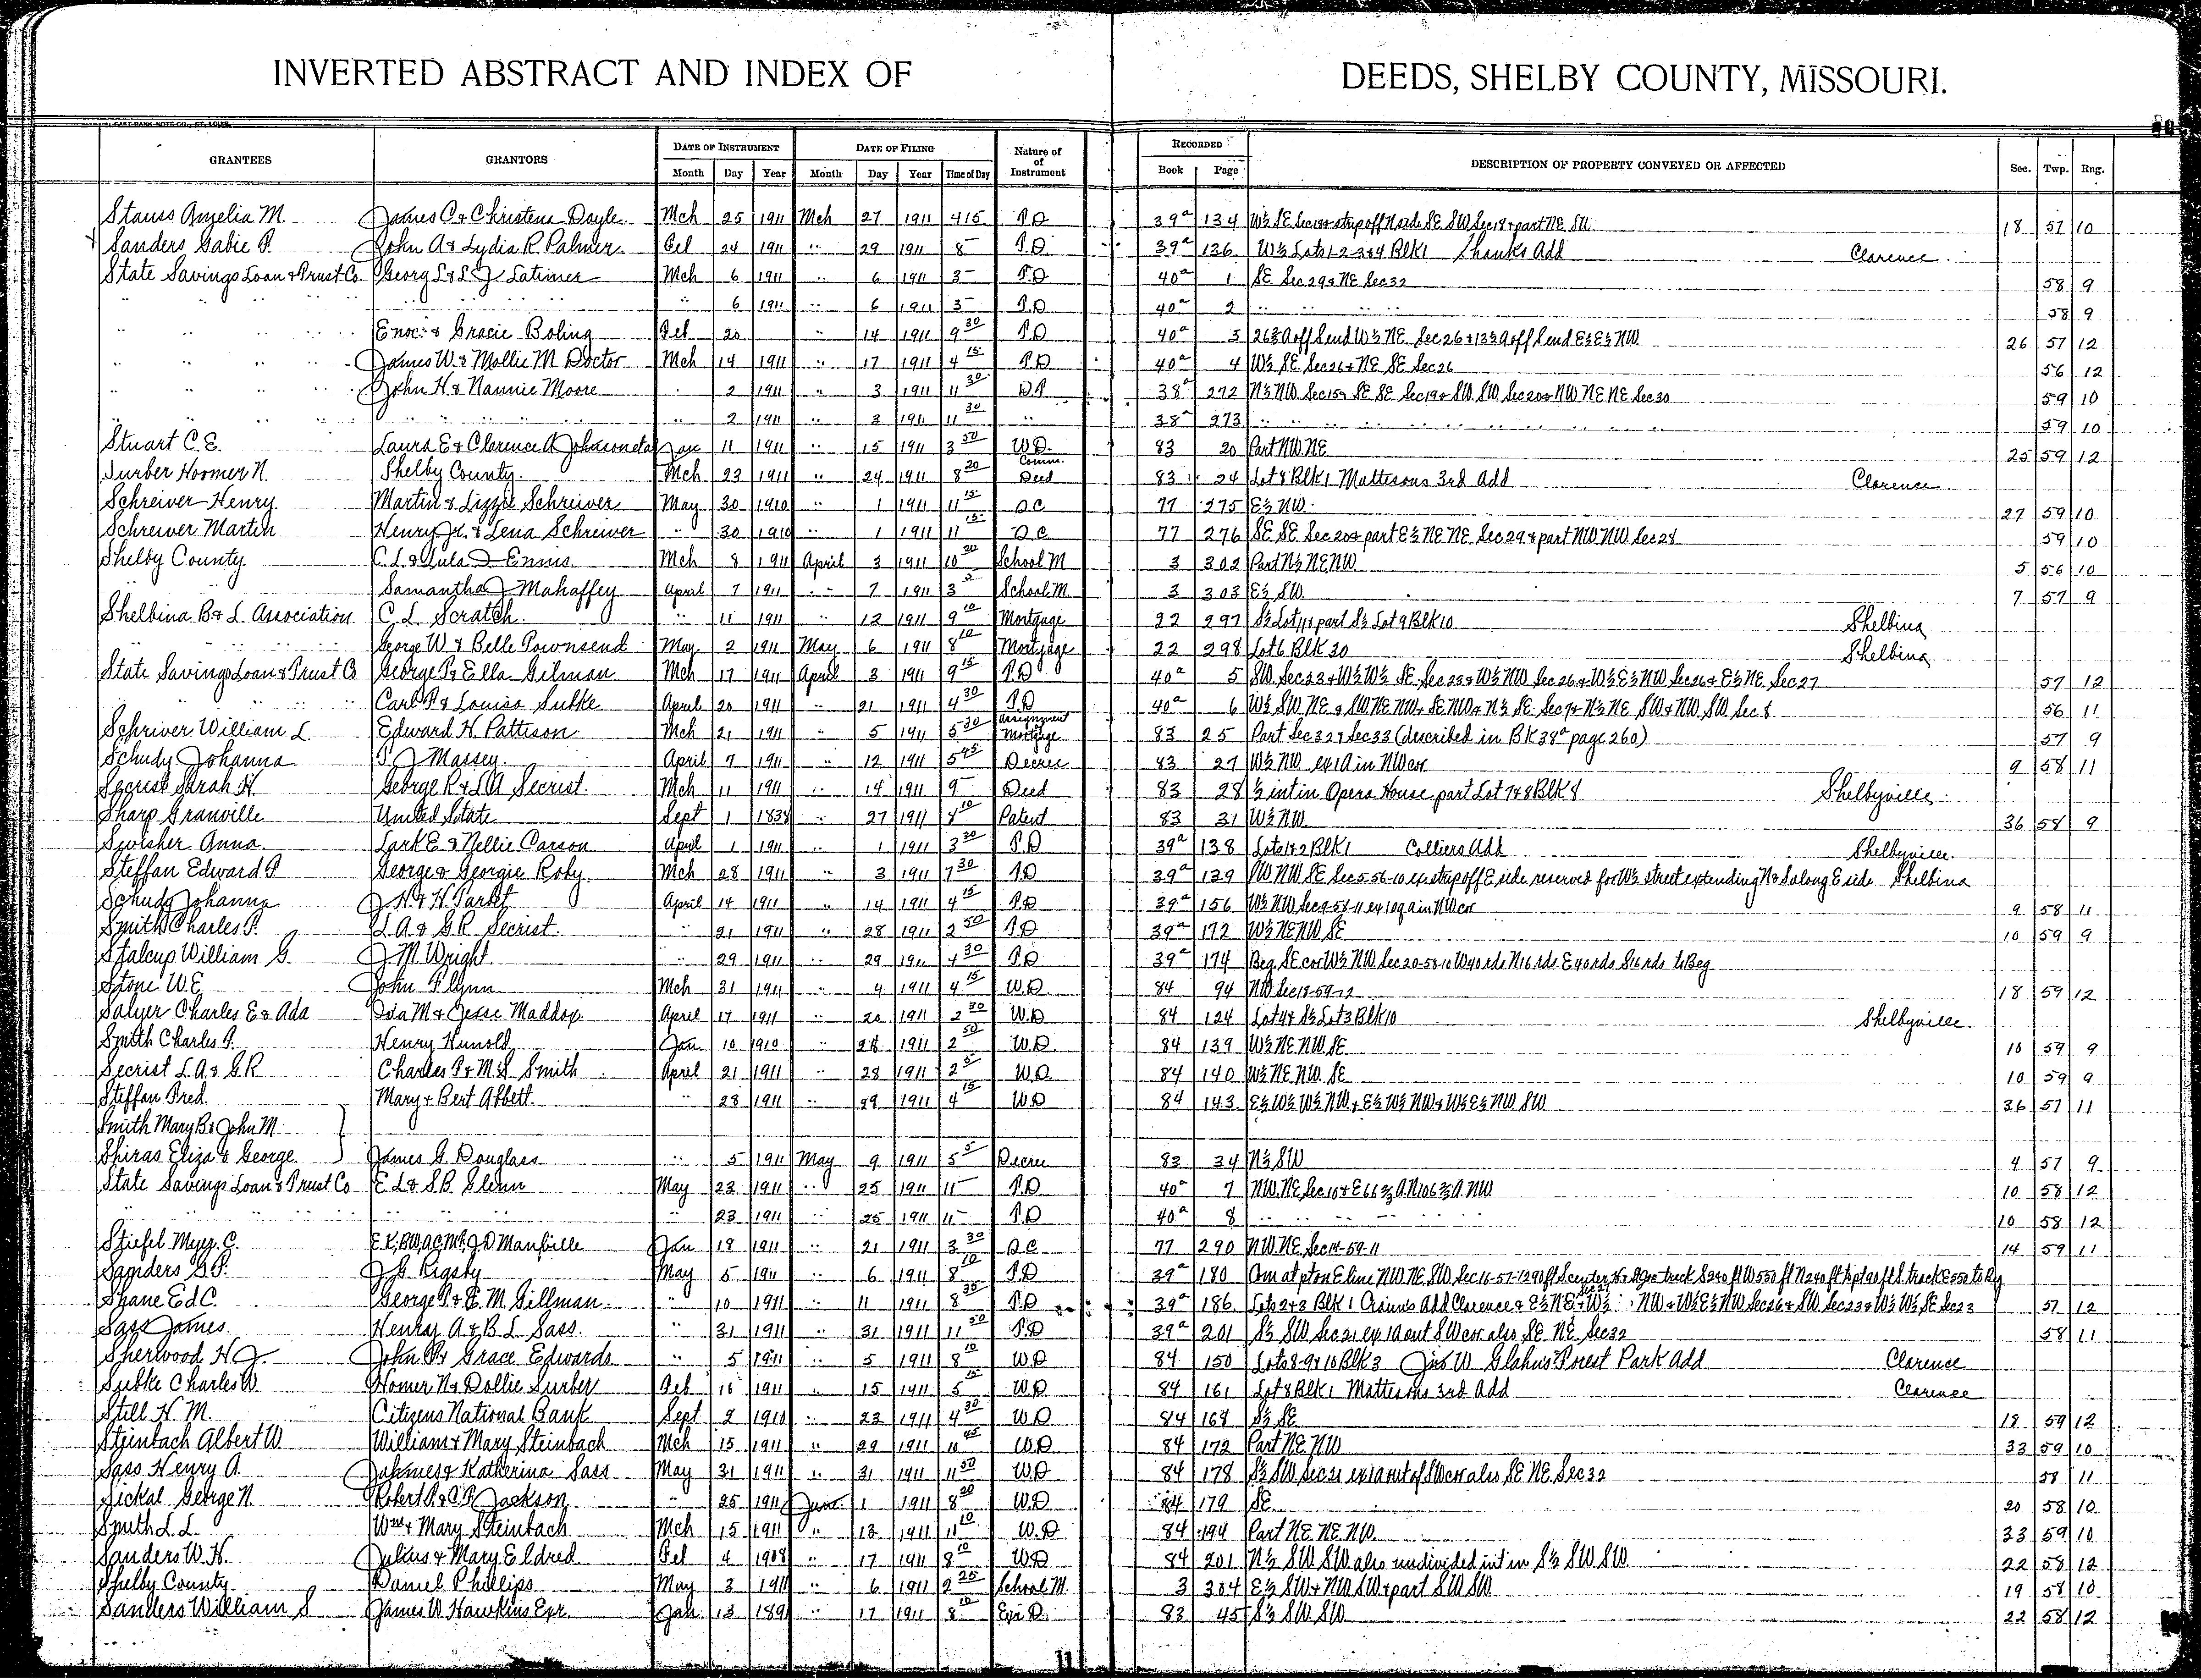 INVERTED ABSTRACT AND INDEX OF DEEDS, SHELBY COUNTY, MISSOURI.
GRANTEES GRANTORS DATE OF INSTRUMENT DATE OF FILING Nature of of Instrument RECORDED DESCRIPTION OF PROPERTY CONVEYED OR AFFECTED Sec. Twp. Rng.
Month Day Year Month Day Year Time of Day Book Page
Stauss Amelia M. James C & Christena Doyle Mch 25 1911 Mch 27 1911 4 15 T.D 39a 134 W½ SE Sec 18 & strip off N side SE SW Sec 18 & part NE SW 18 57 10
Sanders Gabie P. John A & Lydia R. Palmer Feb 24 1911 " 29 1911 8 T.D 39a 136 W½ Lots 1-2-3&4 Blk 1 Shanks Add Clarence
State Savings Loan & Trust Co. Georg L & L.J. Latimer Mch 6 1911 " 6 1911 3 T.D 40a 1 SE Sec 29 & NE Sec 32 58 9
" " " " " 6 1911 " 6 1911 3 T.D 40a 2 " " 58 9
" " " Enoc & Gracie Boling Feb 20 " 14 1911 9 30 T.D 40a 3 26⅔ A off S end W½ NE Sec 26 & 13⅓ A off S end E½ E½ NW 26 57 12
" " " James W. & Mollie M. Doctor Mch 14 1911 " 17 1911 4 15 T.D 40a 4 W½ SE Sec 26 & NE SE Sec 26 56 12
" " " John H. & Nannie Moore " 2 1911 " 3 1911 11 30 D.T 38a 272 N½ NW Sec 15 & SE SE Sec 19 & SW SW Sec 20 & NW NE NE Sec 30 59 10
" " " " " " 2 1911 " 3 1911 11 30 " 38a 273 " " " 59 10
Stuart C.E. Laura E & Clarence A Johnson etal Jan 11 1911 " 15 1911 3 50 W.D. 83 20 Part NW NE 25 59 12
Surber Hoomer N. Shelby County Mch 23 1911 " 24 1911 8 20 Comm. Deed 83 24 Lot 8 Blk 1 Mattesons 3rd Add Clarence
Schreiver Henry Martin & Lizzie Schreiver May 30 1910 " 1 1911 11 15 Q.C 77 275 E½ NW 27 59 10
Schreiver Martin Henry Jr. & Lena Schreiver " 30 1910 " 1 1911 11 15 Q C 77 276 SE SE Sec 20 & part E½ NE NE Sec 29 & part NW NW Sec 28 59 10
Shelby County C.L. & Lula J Ennis Mch 8 1911 April 3 1911 10 20 School M 3 302 Part N½ NE NW 5 56 10
Samantha J Mahaffey April 7 1911 " 7 1911 3 School M. 3 303 E½ SW 7 57 9
Shelbina B & L Association C L Scratch " 11 1911 " 12 1911 9 10 Mortgage 22 297 S½ Lot 11 & part S½ Lot 9 Blk 10 Shelbina
" " George W & Belle Townsend May 2 1911 May 6 1911 8 10 Mortgage 22 298 Lot 6 Blk 30 Shelbina
State Savings Loan & Trust Co George P & Ella Gilman Mch 17 1911 April 3 1911 9 15 T.D 40a 5 SW Sec 23 & W½ W½ SE Sec 23 & W½ NW Sec 26 & W½ E½ NW Sec 26 & E½ NE Sec 27 57 12
" " " Carl P & Louisa Subke April 20 1911 " 21 1911 4 30 T.D 40a 6 W½ SW NE & SW NE NW & SE NW & N½ SE Sec 7 & N½ NE SW & NW SW Sec 8 56 11
Schriver William L. Edward H. Pattison Mch 21 1911 " 5 1911 5 30 Assignment Mortgage 83 25 Part Sec 32 & Sec 33 (described in BK 38a page 260) 57 9
Schudy Johanna J Massey April 7 1911 " 12 1911 5 45 Decree 83 27 W½ NW ex 1A in NW cor 9 58 11
Secrist Sarah H. George R & L A Secrist Mch 11 1911 " 14 1911 9 Deed 83 28 ½ int in Opera House part Lot 7&8 Blk 8 Shelbyville
Sharp Granville United State Sept 1 1838 " 27 1911 8 10 Patent 83 31 W½ NW 36 58 9
Swisher Anna Lark E. & Nellie Carson April 1 1911 " 1 1911 3 30 T.D 39a 138 Lots 1&2 Blk 1 Colliers Add Shelbyville
Steffan Edward P George & Georgie Roby Mch 28 1911 " 3 1911 7 30 T.D 39a 139 SW NW SE Sec 5-56-10 ex strip off E side reserved for W½ street extending N & S along E side Shelbina
Schudy Johanna J H & H Parkt April 14 1911 " 14 1911 4 15 T.D 39a 156 W½ NW Sec 9-58-11 ex 1 sq a in NW cor 9 58 11
Smith Charles P. L.A & G.R Secrist " 21 1911 " 28 1911 2 50 T.D 39a 172 W½ NE NW SE 10 59 9
Stalcup William G J M Wright " 29 1911 " 29 1911 4 30 T.D 39a 174 Beg. SE cor W½ NW Sec 20-58-10 W 40 rds N 16 rds E 40 rds S 16 rds to Beg
Stone W.E John Flynn Mch 31 1911 " 4 1911 4 15 W.D. 84 94 NW Sec 18-59-12 18 59 12
Salyer Charles E & Ada Ida M & Jesse Maddox April 17 1911 " 20 1911 2 30 W.D 84 124 Lot 4 & S½ Lot 3 Blk 10 Shelbyville
Smith Charles P. Henry Hunold Jan 10 1910 " 28 1911 2 50 W.D. 84 139 W½ NE NW SE 10 59 9
Secrist L.A. & G.R Charles P & M.S. Smith April 21 1911 " 28 1911 2 5 W.D. 84 140 W½ NE NW SE 10 59 9
Steffan Fred Mary & Bert Abbett " 28 1911 " 29 1911 4 15 W.D 84 143 E½ W½ W½ NW & E½ W½ NW & W½ E½ NW SW 36 57 11
Smith Mary B & John M.
Shiras Eliza & George James G. Douglass " 5 1911 May 9 1911 5 5 Decree 83 34 N½ SW 4 57 9
State Savings Loan & Trust Co E L & S.B. Glenn May 23 1911 " 25 1911 11 T.D 40a 7 NW NE Sec 10 & E 66⅔ A. N 106⅔ A. NW 10 58 12
" " " " 23 1911 " 25 1911 11 T.D 40a 8 " " 10 58 12
Stiefel C. Manville Jan 18 1911 " 21 1911 3 30 Q C 77 290 NW NE Sec 14-59-11 14 59 11
Sanders G.P. J G Rigsby May 5 1911 " 6 1911 8 10 T.D 39a 180
Shane Ed C. George P & E. M. Gillman " 10 1911 " 11 1911 8 35 T.D 39a 186 Lots 2&3 Blk 1 Add Clarence & E½ NE Sec 27 & W½ NW & W½ E½ NW Sec 26 & SW Sec 23 & W½ W½ SE Sec 23 57 12
Sass James Henry A. & B.L. Sass " 31 1911 " 31 1911 11 50 T.D 39a 201 S½ SW Sec 21 ex 1A out SW cor also SE NE Sec 32 58 11
Sherwood H.J. John P & Grace Edwards " 5 1911 " 5 1911 8 10 W.D 84 150 Lots 8-9&10 Blk 3 Jno W Glahns Forest Park Add Clarence
Subke Charles W. Homer N & Dollie Surber Feb 16 1911 " 15 1911 5 15 W.D 84 161 Lot 8 Blk 1 Mattesons 3rd Add Clarence
Still H. M. Citizens National Bank Sept 2 1910 " 23 1911 4 30 W.D 84 168 S½ SE 18 59 12
Steinbach Albert W. William & Mary Steinbach Mch 15 1911 " 29 1911 10 45 W.D 84 172 Part NE NW 33 59 10
Sass Henry A. & Katherina Sass May 31 1911 " 31 1911 11 50 W.D 84 178 S½ SW Sec 21 ex 1A out of SW cor also SE NE Sec 32 58 11
Sickal George N. Robert P. & Jackson " 25 1911 June 1 1911 8 20 W.D 84 179 SE 20 58 10
Smith L.L. Wm & Mary Steinbach Mch 15 1911 " 13 1911 11 10 W.D 84 194 Part NE NE NW 33 59 10
Sanders W.H. Julius & Mary Eldred Feb 4 1908 " 17 1911 8 10 W.D 84 201 N½ SW SW also undivided int in S½ SW SW 22 58 12
Shelby County Daniel Phillips May 3 1911 " 6 1911 2 25 School M. 3 304 E½ SW & NW SW & part SW SW 19 58 10
Sanders William S James W. Hawkins Exr. Jan 13 189 " 17 1911 8 10 Exr D. 83 45 S½ SW SW 22 58 12